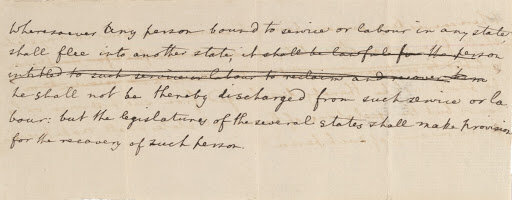 Wheresoever any person bound to service or labour in any state
shall flee into another state, it shall be lawful for the person
intitled to such service or labour to reclaim and recover him
he shall not be thereby discharged from such service or la
bour: but the legislatures of the several states shall make provision
for the recovery of such person.